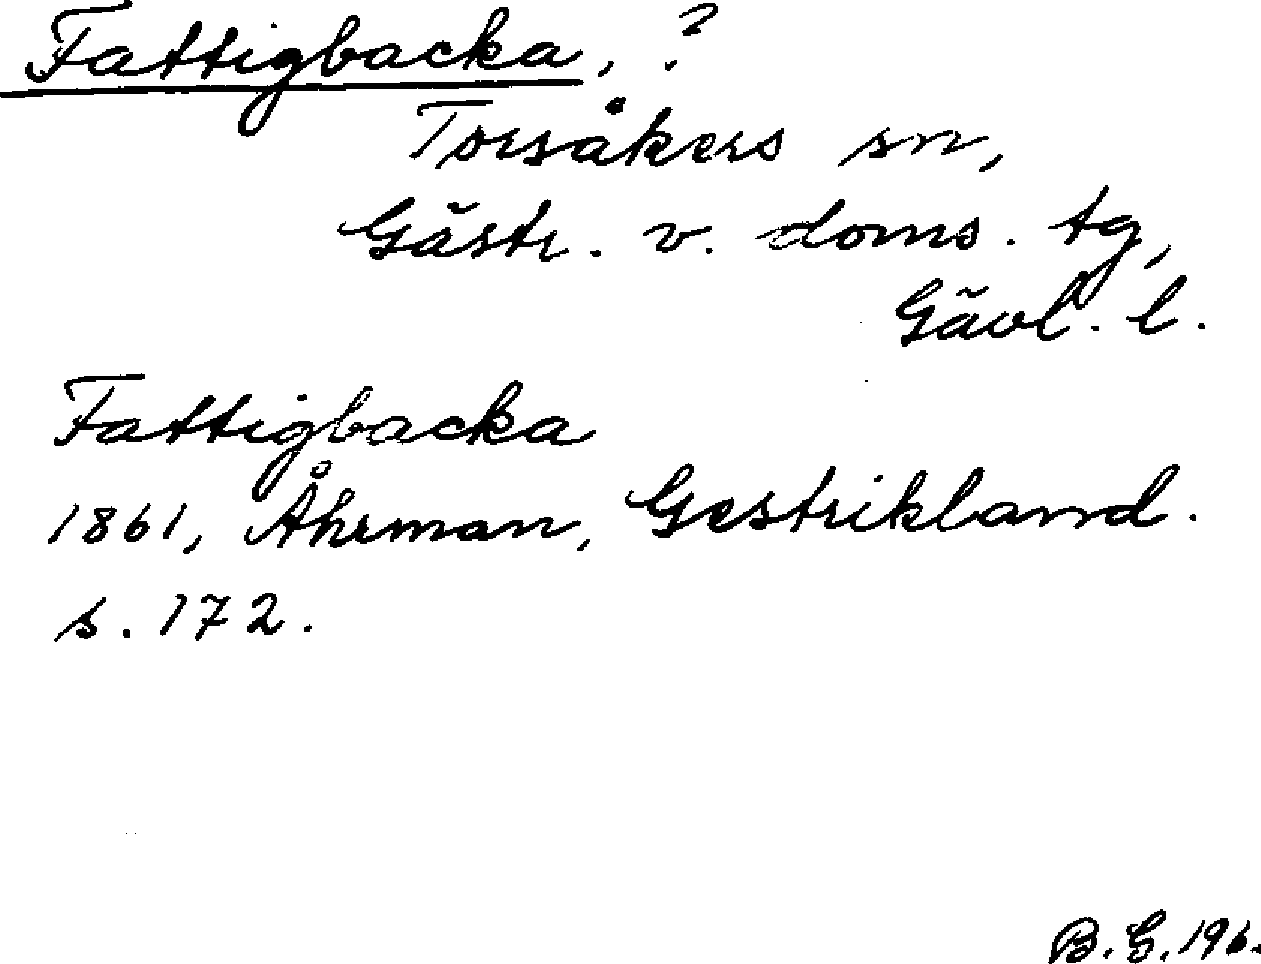 Fattigbacka, ?
Torsåkers sn,
Gästr. v. doms. tg,
Gävl. l.
Fattigbacka
1861, Åhrman, Gestrikland.
s. 172.
B. G. 196.